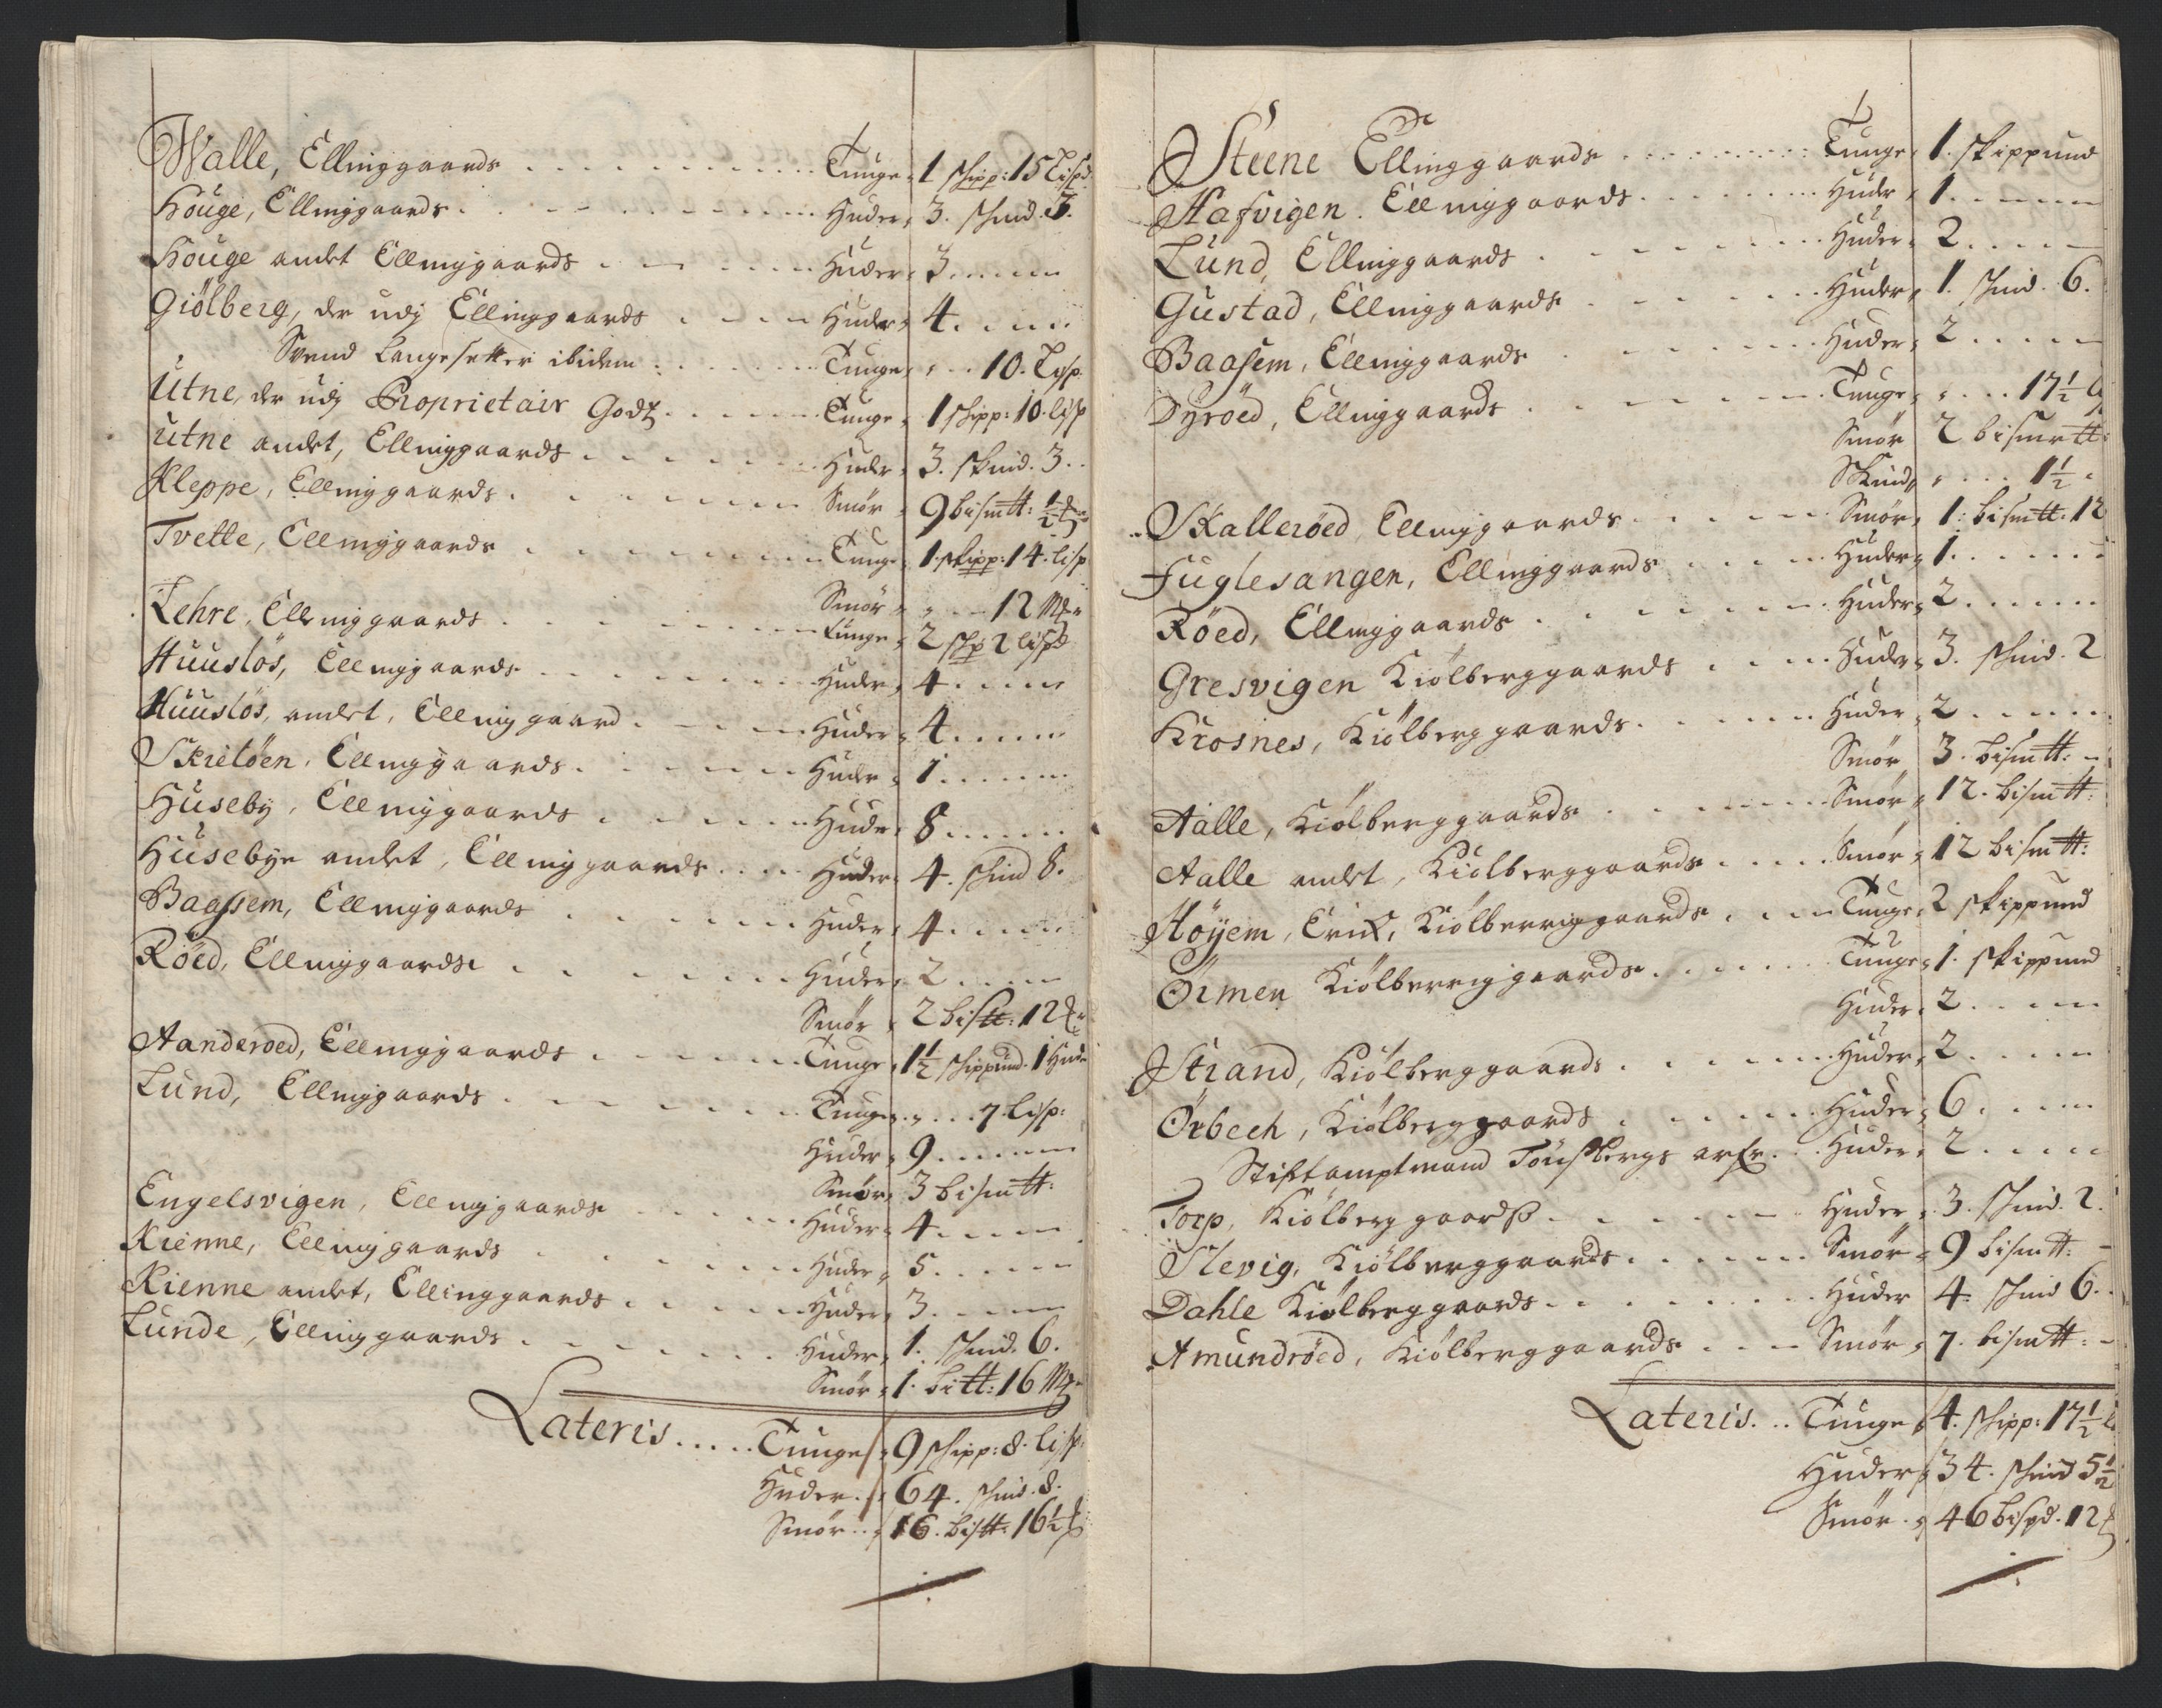 Walle, Ellinggaards . . . Tunge 1 schipp: 15 Lispd
Houge, Ellinggaards . . . Huder, 3. schind. 3.
Houge andet Ellinggaards . . . Huder, 3 . . .
Giölberg, der udj Ellinggaards . . . Huder, 4 . . .
Svend Langesetter ibidem . . . Tunge, " . . 10. Lisp
Utne, der udj Proprietair Godtz . . . Tunge, 1 schipp: 10. lisp
Utne andet, Ellinggaards . . . Huder, 3. skind. 3.
Kleppe, Ellinggaards . . . Smør, 9 bismtt: ½
Tvette, Ellinggaards . . . Tunge, 1. skipp: 14. lisp
Smør, " . . 12 Mkr
Lehre, Ellinggaards . . . Tunge, 2 schp 2 lispd
Huusløs, Ellinggaards . . . Huder, 4 . . .
Huusløs, andet, Ellinggaard . . . Huder, 4 . . .
Skriløen, Ellinggaards . . . Huder, 1 . . .
Huseby, Ellinggaards . . . Huder, 8 . . .
Husebye andet, Ellinggaards . . . Huder, 4. schind 8.
Baassem, Ellinggaards . . . Huder, 4 . . .
Röed, Ellinggaards . . . Huder, 2 . . .
Smør, 2 bistt: 12
Aanderoed, Ellinggaards . . . Tunge, 1½ schippund. 1 Hude
Lund, Ellinggaards . . . Tunge, " . . 7. Lisp:
Huder, 9 . . .
Smør, 3 bismtt:
Engelsvigen, Ellinggaards . . . Huder, 4 . . .
Kienne, Ellinggaards . . . Huder, 5 . . .
Kienne andet, Ellinggaards . . . Huder, 3 . . .
Lunde, Ellinggaards . . . Huder, 1. schind. 6.
Smør, 1. bitt: 16 Mk
Lateris . . . Tunge, 9 schipp: 8. lisp:
Huder . . 64. schind. 8.
Smør . . 16. bistt: 16½
Steene Ellinggaards . . . Tunge, 1. skippund
Hafvigen. Ellinggaards . . . Huder, 1 . . .
Lund, Ellinggaards . . . Huder, 2 . . .
Gustad, Ellinggaards . . . Huder, 1. schind. 6.
Baasem, Ellinggaards . . . Huder, 2 . . .
Dyröed, Ellinggaards . . . Tunge, " . . 17½
Smør 2 bismrtt:
Skind, " . . 1½
Skalleröed, Ellinggaards . . . Smør, 1: bismtt: 12
Fuglesangen, Ellinggaards . . . Huder, 1 . . .
Röed, Ellinggaards . . . Huder, 2 . . .
Gresvigen Kiölberggaards . . . Huder, 3. schind. 2
Krosnes, Kiölberggaards . . . Huder, 2 . . .
Smør 3. bismtt:
Aalle, Kiölberggaards . . . Smør, 12. bismtt:
Aalle andet, Kiölberggaards . . . Smør, 12 bismtt:
Höyem, Erick, Kiölberriggaards . . . Tunge, 2 skippund
Örmen Kiölberriggaards . . . Tunge, 1. skippund
Huder, 2 . . .
Strand, Kiölberggaards . . . Huder, 2 . . .
Örbech, Kiölberggaards . . . Huder, 6 . . .
Stiftamptmand Tönsbergs arfr . . . Huder, 2 . . .
Torp, Kiölberggaards . . . Huder, 3. schind. 2.
Slevig, Kiölberggaards . . . Smør, 9 bismtt:
Dahle Kiölberggaards . . . Huder 4. schind 6.
Amundröed, Kiölberggaards . . . Smør, 7. bismtt:
Lateris . . . Tunge, 4. schipp: 17½
Huder, 34. schind 5½
Smør . . 46 bispd. 12